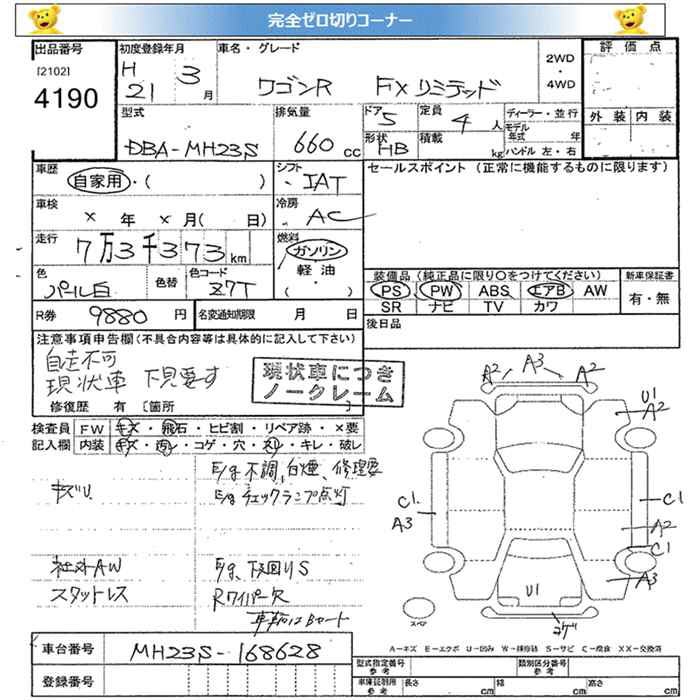 完全ゼロ切りコーナー
出品番号
[2102]
4190
初度登録年月
H 21 3 月
車名・グレード
ワゴンR FXリミテッド
2WD
・
4WD
評価点
外装 内装
型式
DBA-MH23S
排気量
660 cc
ドア
5
定員
4 人
形状
HB
積載
kg
ディーラー・並行
モデル年式 年
ハンドル 左・右
車歴
自家用・( )
シフト
・IAT
セールスポイント (正常に機能するものに限ります)
車検
× 年 × 月( 日)
冷房
AC
走行
7万3千373km
燃料
ガソリン
軽油
・( )
色
パール白
色替
色コード
Z7T
装備品 (純正品に限り○をつけてください)
PS PW ABS エアB AW
SR ナビ TV カワ
新車保証書
有・無
R券 9880 円
名変通知期限 月 日
後日品
注意事項申告欄(不具合内容等は具体的に記入して下さい)
自走不可
現状車 下見要す
現状車につき
ノークレーム
修復歴 有 [箇所 ]
検査員 FW キズ・飛石・ヒビ割・リペア跡・×要
記入欄 内装 キズ・汚レ・コゲ・穴・スレ・キレ・破レ
E/g不調、白煙、修理要
キズU
E/gチェックランプ点灯
社外AW
E/g、下回りS
スタットレス
Rワイパー欠
車輌はBヤード
A2 A3 A2
U1
A2
C1
A3
C1
A2
C1
A3
U1
コゲ
スペア
A-キズ E-エクボ U-凹み W-補修跡 S-サビ C-腐食 XX-交換済
車台番号 MH23S-168628
登録番号
型式指定番号
参考
類別区分番号
参考
車庫証明用
参考
長さ cm
幅 cm
高さ cm